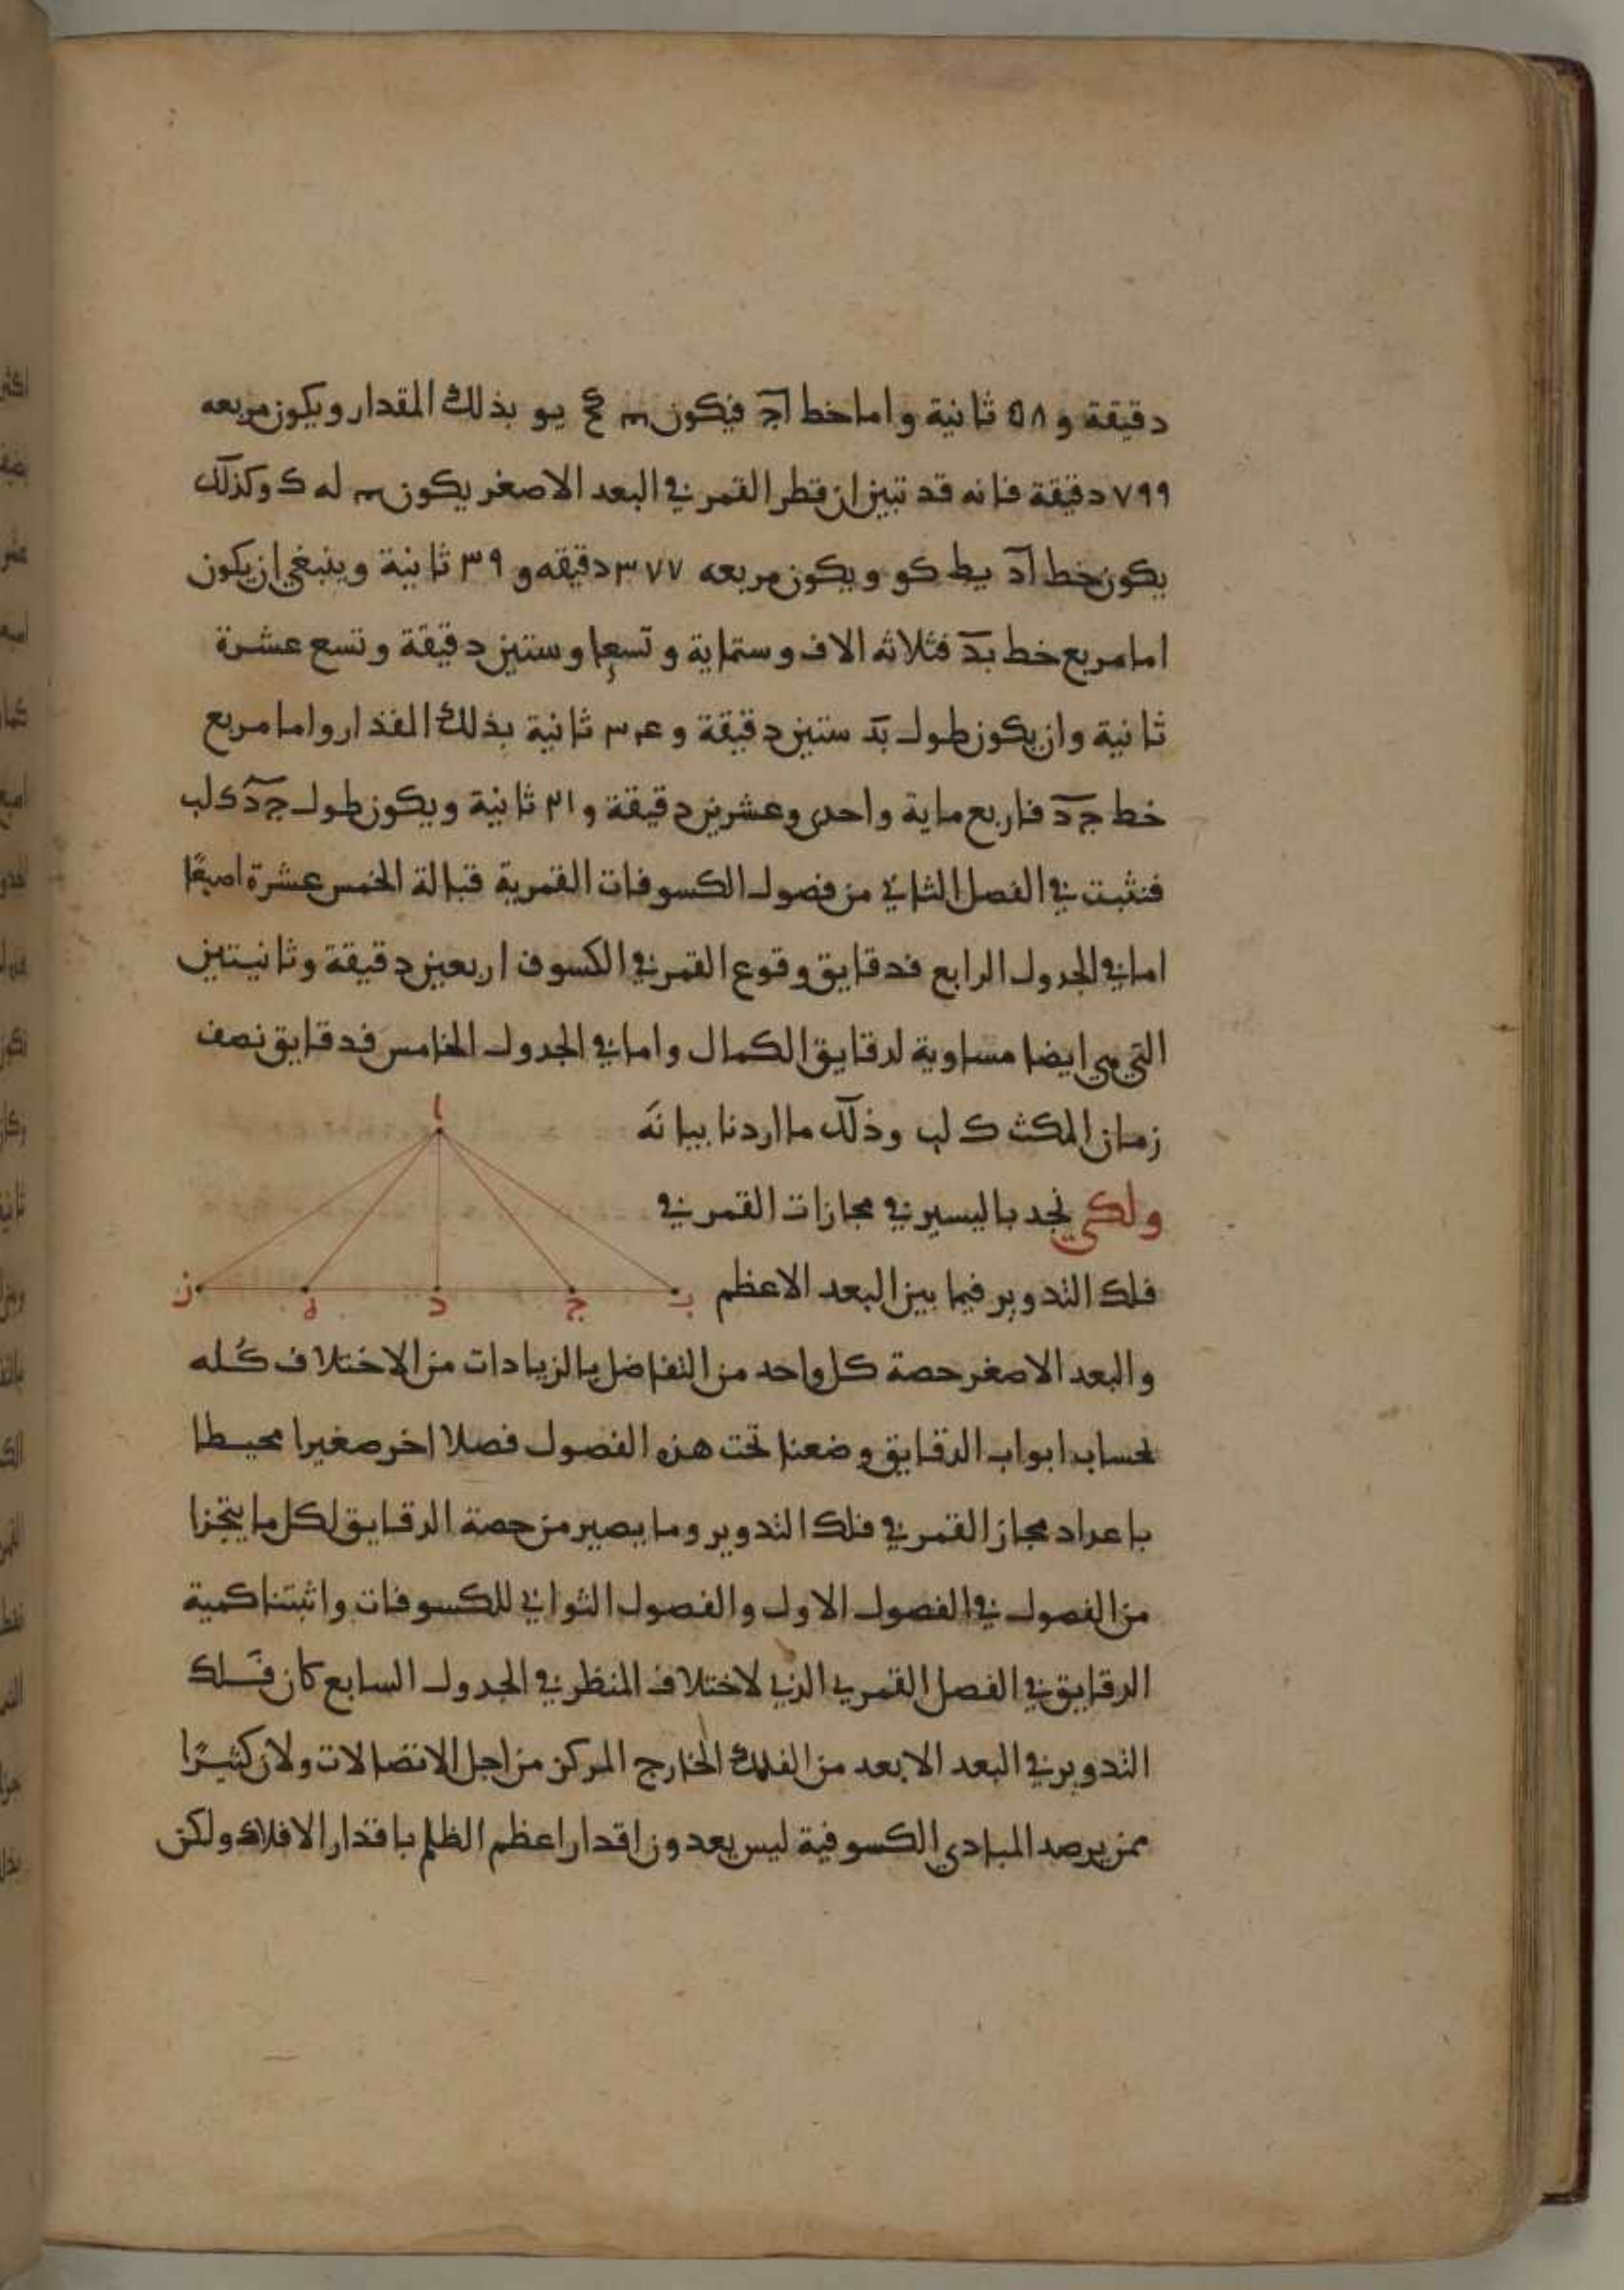 دقيقة و ٥٨ ثانية واما خط اج فيكون يو بذلك المقدار ويكون مربعه
٧٩٩ دقيقة فانه قد تبين ان قطر القمر في البعد الاصغر يكون له ك وكذلك
يكون خط اد يط كو ويكون مربعه ٣٧٧ دقيقه و ٣٩ ثانية وينبغي ان يكون
اما مربع خط بد فثلاثه الاف وستماية وتسعا وستين دقيقة وتسع عشرة
ثانية وان يكون طول بد ستين دقيقة و ثانية بذلك المقدار واما مربع
خط جد فاربع ماية واحدى وعشرين دقيقة و ثانية ويكون طول جد ك لب
فنثبت في الفصل الثاني من فصول الكسوفات القمرية قبالة الخمس عشرة اصبعًا
اما في الجدول الرابع فدقايق وقوع القمر في الكسوف اربعين دقيقة وثانيتين
التي هي ايضا مساوية لدقايق الكمال واما في الجدول الخامس فدقايق نصف
زمان المكث ك لب وذلك ما اردنا بيانه
ولكي نجد باليسير في مجازات القمر في
فلك التدوير فيما بين البعد الاعظم
ا
ب ج د ه ز
والبعد الاصغر حصة كل واحد من التفاضل بالزيادات من الاختلاف كله
بحساب ابواب الدقايق وضعنا تحت هذه الفصول فصلا اخر صغيرا محيطا
باعداد مجاز القمر في فلك التدوير وما يصير من حصة الدقايق لكل ما يتجزا
من الفصول في الفصول الاول والفصول الثواني للكسوفات واثبتنا كمية
الدقايق في الفصل القمري الذي لاختلاف المنظر في الجدول السابع كان فلك
التدوير في البعد الابعد من الفلك الخارج المركز من اجل الاتصالات ولان كثيرًا
ممن يرصد المبادي الكسوفية ليس يعدون اقدار اعظم الظلم باقدار الافلاك ولكن